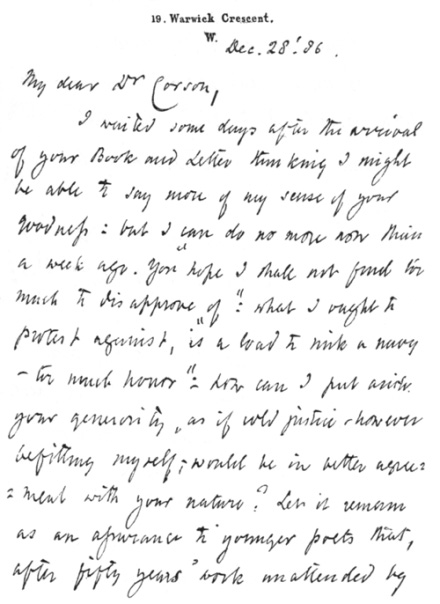 19. Warwick Crescent.
W.
Dec. 28' '86.
My dear Dr Corson,
I waited some days after the arrival
of your Book and Letter thinking I might
be able to say more of my sense of your
goodness: but I can do no more now than
a week ago. You "hope I shall not find too
much to disapprove of": what I ought to
protest against, is "a load to sink a navy
- too much honor": how can I put aside
your generosity, as if cold justice - however
befitting myself - would be in better agree-
=ment with your nature? Let it remain
as an assurance to younger poets that,
after fifty years' work unattended by